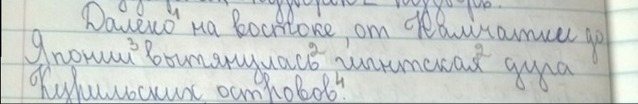 Далеко⁴ на востоке, от Камчатки до
Японии³ вытянулась² гигантская² дуга
Курильских островов⁴.